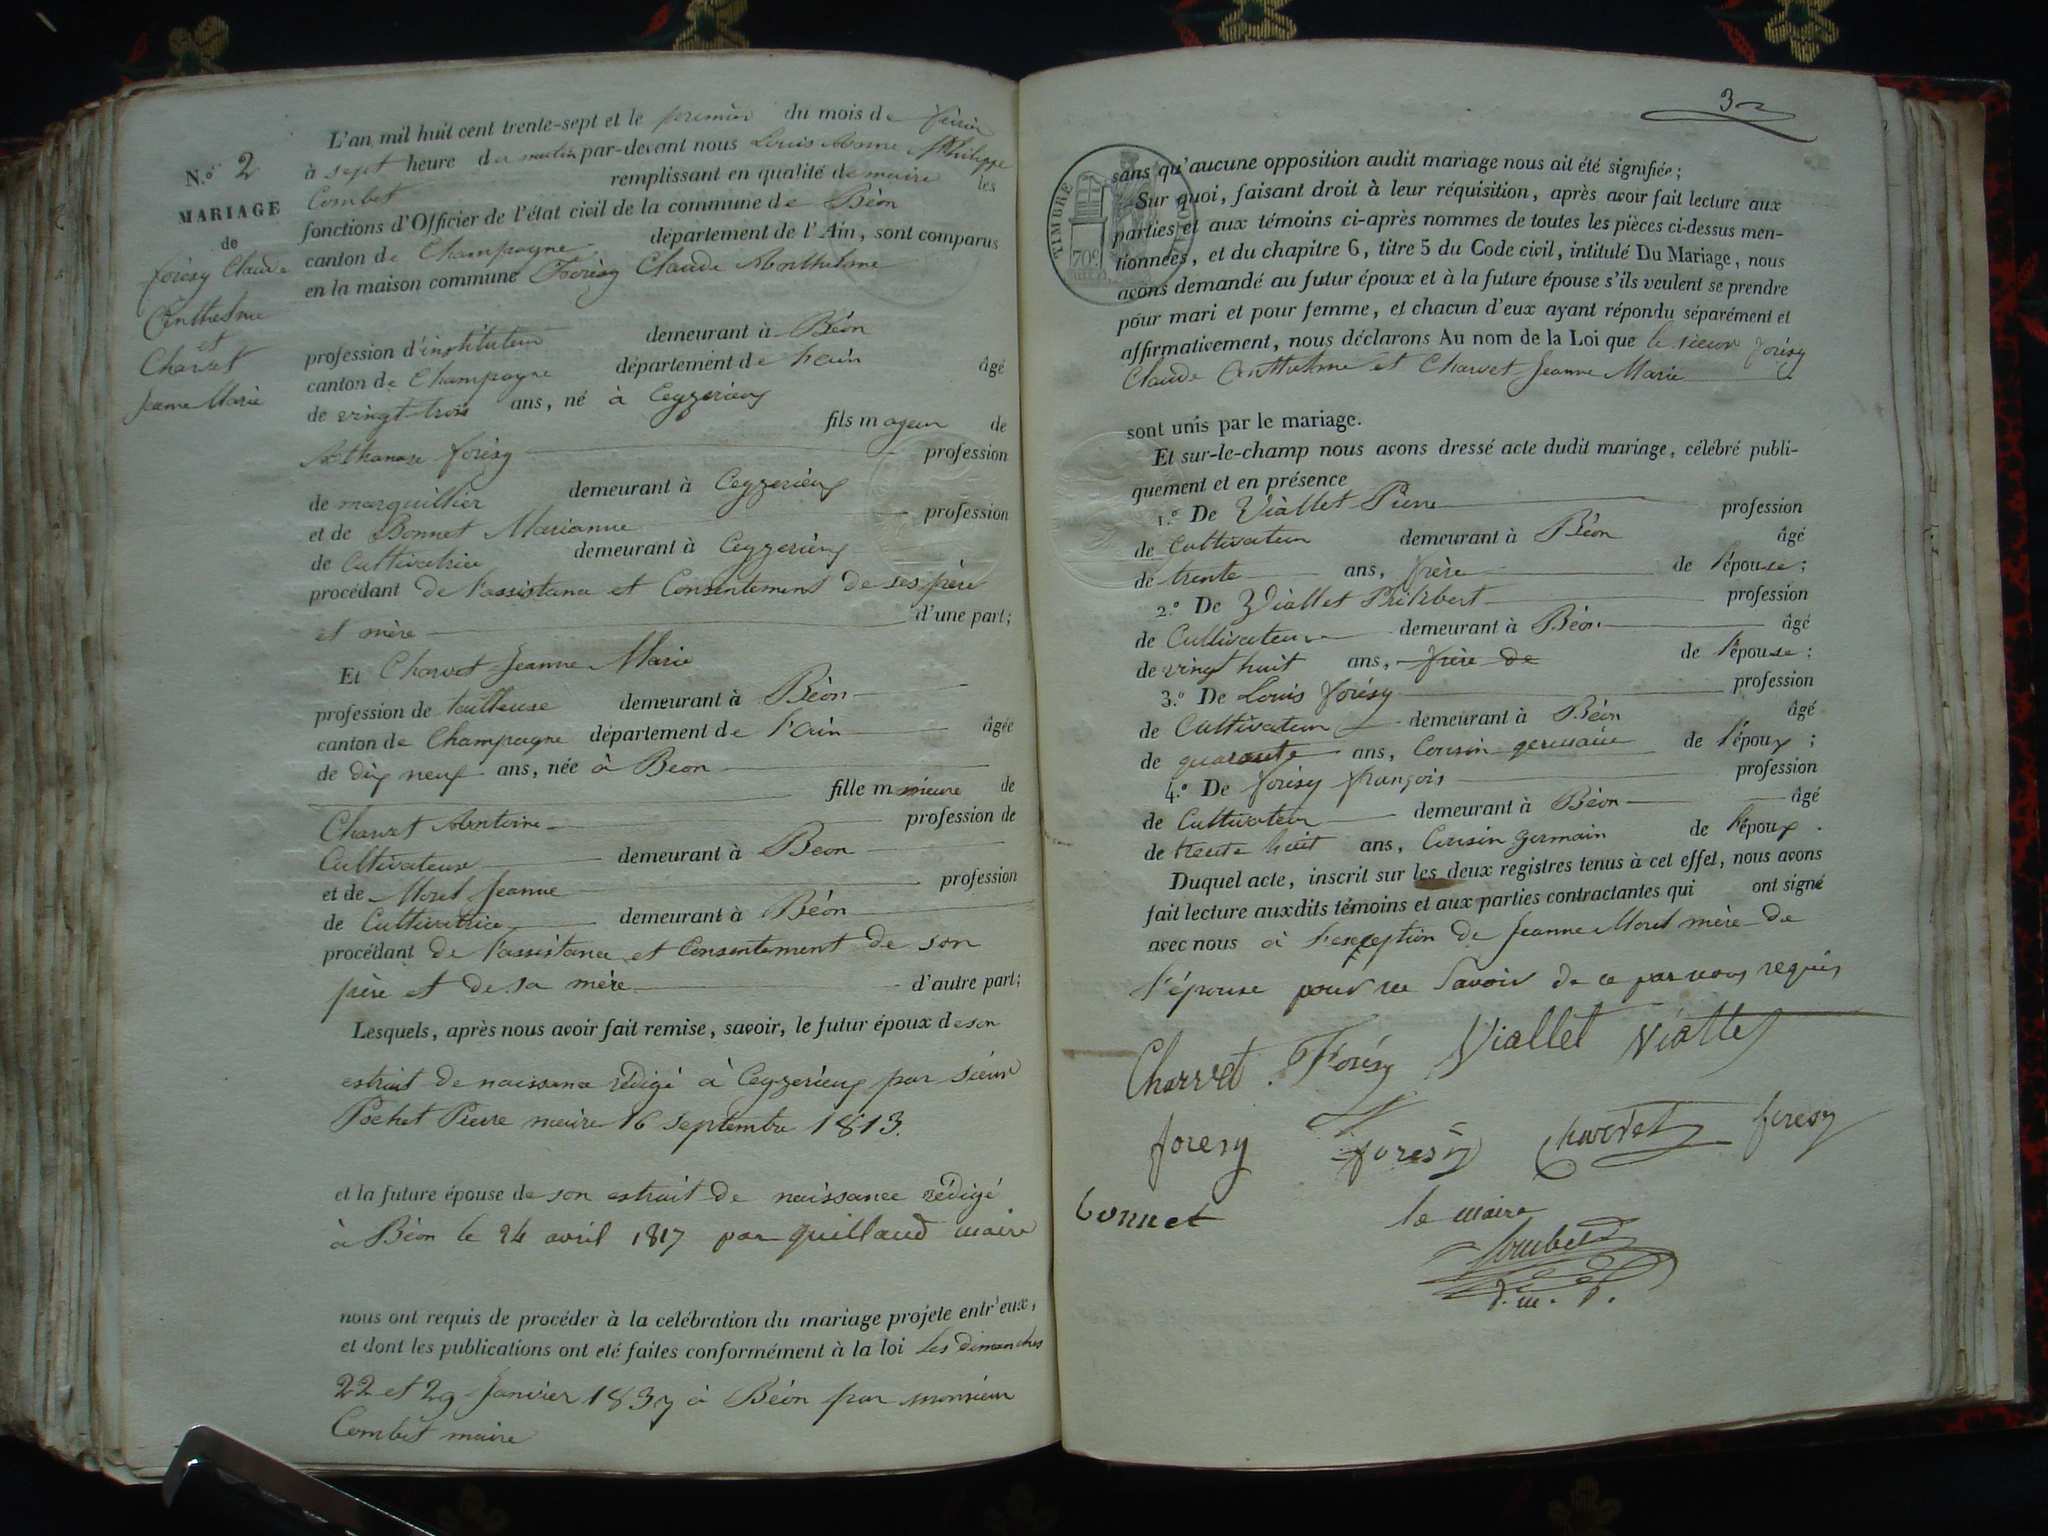 N.º 2
MARIAGE
de
forésy Claude
Anthelme
et
Charvet
Jeanne Marie
L'an mil huit cent trente-sept et le premier du mois de février
à sept heure du matin par-devant nous Louis Philippe
Combet remplissant en qualité de maire les
fonctions d'Officier de l'état civil de la commune de Béon
canton de Champagne département de l'Ain, sont comparus
en la maison commune Forésy Claude Anthelme
profession d'instituteur demeurant à Béon
canton de Champagne département de l'ain âgé
de vingt-trois ans, né à Ceyzerieux
fils mageur de
Athanase forésy profession
de marguillier demeurant à Ceyzerieux
et de Bonnet Marianne profession
de Cultivatrice demeurant à Ceyzerieux
procédant de l'assistance et Consentement de ses père
et mère d'une part;
Et Charvet Jeanne Marie
profession de tailleuse demeurant à Béon
canton de Champagne département de l'Ain âgée
de dix neuf ans, née à Beon
fille mineure de
Charvet Antoine profession de
Cultivateur demeurant à Beon
et de Moret Jeanne profession
de Cultivatrice demeurant à Béon
procédant de l'assistance et Consentement de son
père et de sa mère d'autre part;
Lesquels, après nous avoir fait remise, savoir, le futur époux de son
extrait de naissance rédigé à Ceyzerieux par sieur
Pochet Pierre maire 16 septembre 1813.
et la future épouse de son extrait de naissance rédigé
à Béon le 24 avril 1817 par guillaud maire
nous ont requis de procéder à la celébration du mariage projete entr'eux,
et dont les publications ont eté faites conformément à la loi les dimanches
22 et 29 Janvier 1837 à Béon par monsieur
Combet maire
3
TIMBRE
70c
sans qu'aucune opposition audit mariage nous ait été signifiée;
Sur quoi, faisant droit à leur réquisition, après avoir fait lecture aux
parties et aux témoins ci-après nommes de toutes les pièces ci-dessus men-
tionnées, et du chapitre 6, titre 5 du Code civil, intitulé Du Mariage, nous
avons demandé au futur époux et à la future épouse s'ils veulent se prendre
pour mari et pour femme, et chacun d'eux ayant répondu séparément et
affirmativement, nous déclarons Au nom de la Loi que le sieur forésy
Claude Anthelme et Charvet Jeanne Marie
sont unis par le mariage.
Et sur-le-champ nous avons dressé acte dudit mariage, célébré publi-
quement et en présence
1.º De Viallet Pierre profession
de Cultivateur demeurant à Béon âgé
de trente ans, frère de l'épouse;
2.º De Viallet Philibert profession
de Cultivateur demeurant à Béon âgé
de vingt huit ans, frère de de l'épouse;
3.º De Louis forésy profession
de Cultivateur demeurant à Béon âgé
de quarante ans, Cousin germain de l'époux;
4.º De forésy françois profession
de Cultivateur demeurant à Béon âgé
de trente huit ans, Cousin germain de l'époux.
Duquel acte, inscrit sur les deux registres tenus à cet effet, nous avons
fait lecture auxdits témoins et aux parties contractantes qui ont signé
avec nous à l'exception de Jeanne Moret mère de
l'épouse pour ne Savoir de ce par nous requis
Charvet Forésy Viallet Viallet
foresy foresy Charvet foresy
bonnet le maire
Combet
d. m. p.